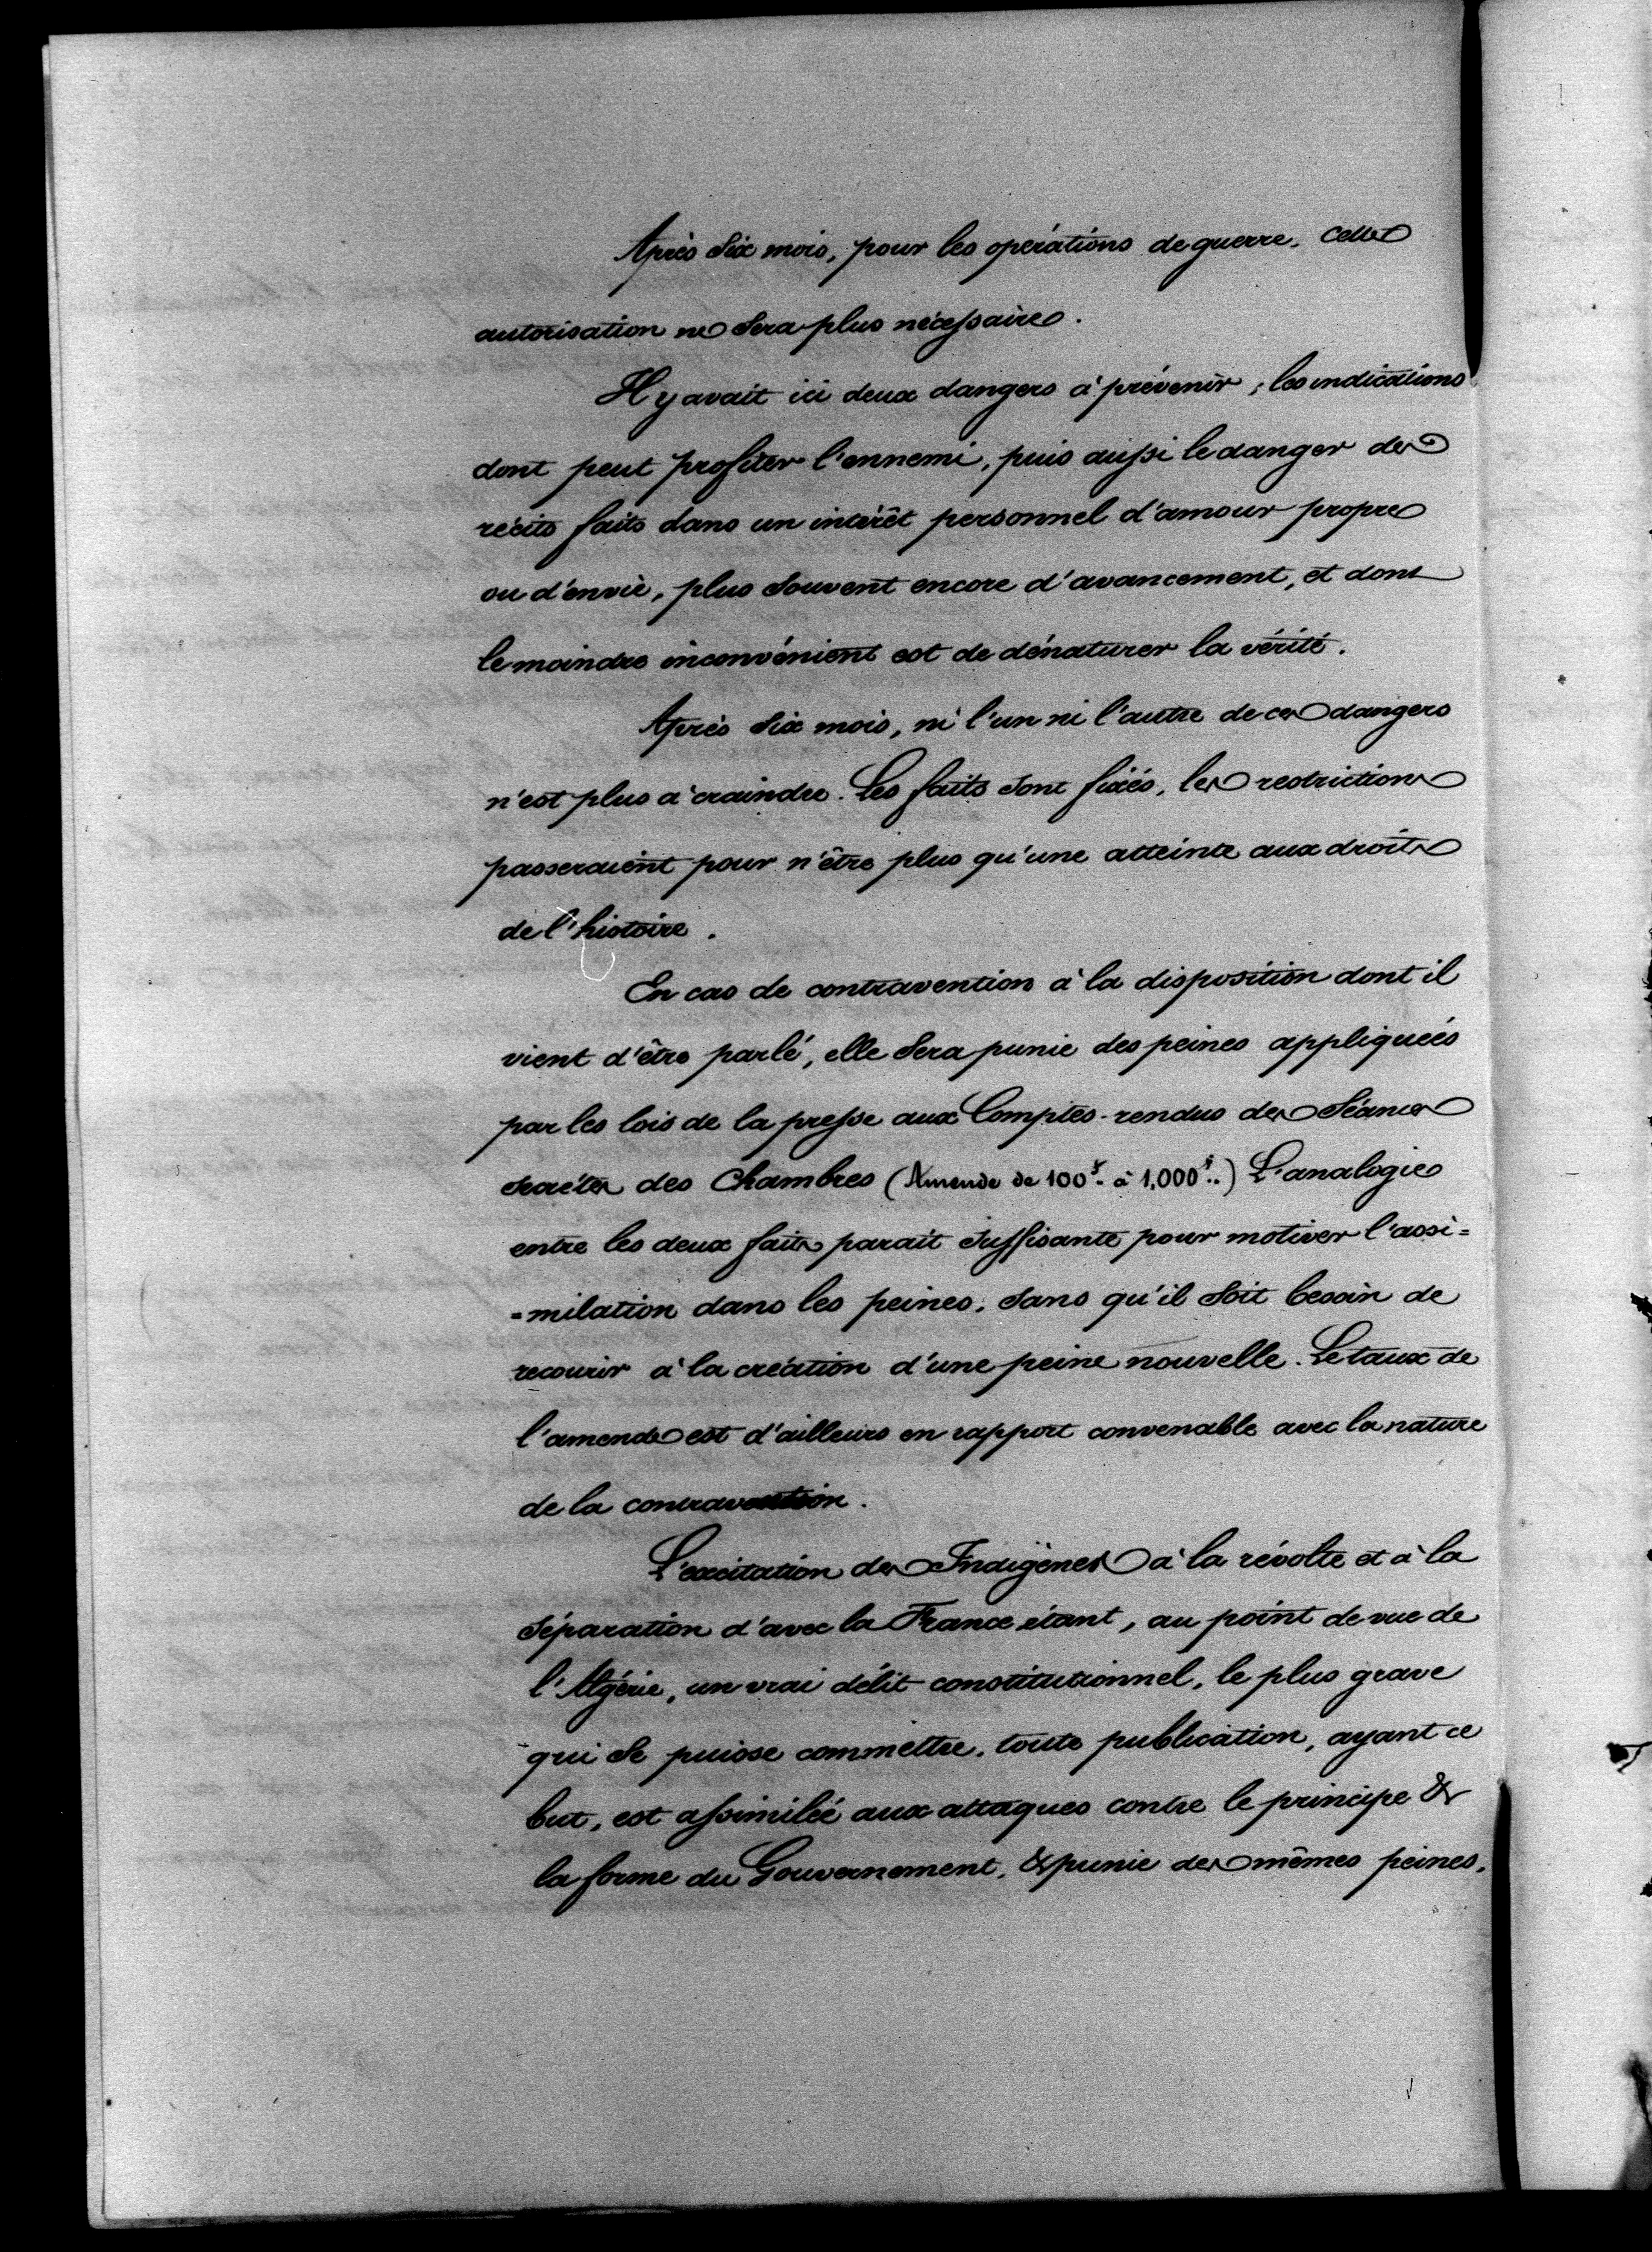 Après six mois, pour les opérations de guerre, cette
autorisation ne sera plus nécessaire.
Il y avait ici deux dangers à prévenir ; les indications
dont peut profiter l'ennemi, puis aussi le danger des
récits faits dans un intérêt personnel d'amour propre
ou d'envie, plus souvent encore d'avancement, et dont
le moindre inconvénient est de dénaturer la vérité.
Après six mois, ni l'un ni l'autre de ces dangers
n'est plus à craindre. Les faits sont fixés, les restrictions
passeraient pour n'être plus qu'une atteinte aux droits
de l'histoire.
En cas de contravention à la disposition dont il
vient d'être parlé, elle sera punie des peines appliquées
par les lois de la presse aux Comptes-rendus des séances
secrètes des Chambres (Amende de 100f. à 1,000f..) L'analogie
entre les deux faits parait suffisante pour motiver l'assi=
=milation dans les peines, sans qu'il soit besoin de
recourir à la création d'une peine nouvelle. Le taux de
l'amende est d'ailleurs en rapport convenable avec la nature
de la contravention.
L'excitation des Indigènes à la révolte et à la
séparation d'avec la France étant, au point de vue de
l'Algérie, un vrai délit constitutionnel, le plus grave
qui se puisse commettre, toute publication, ayant ce
but, est assimilée aux attaques contre le principe &
la forme du Gouvernement, & punie des mêmes peines.